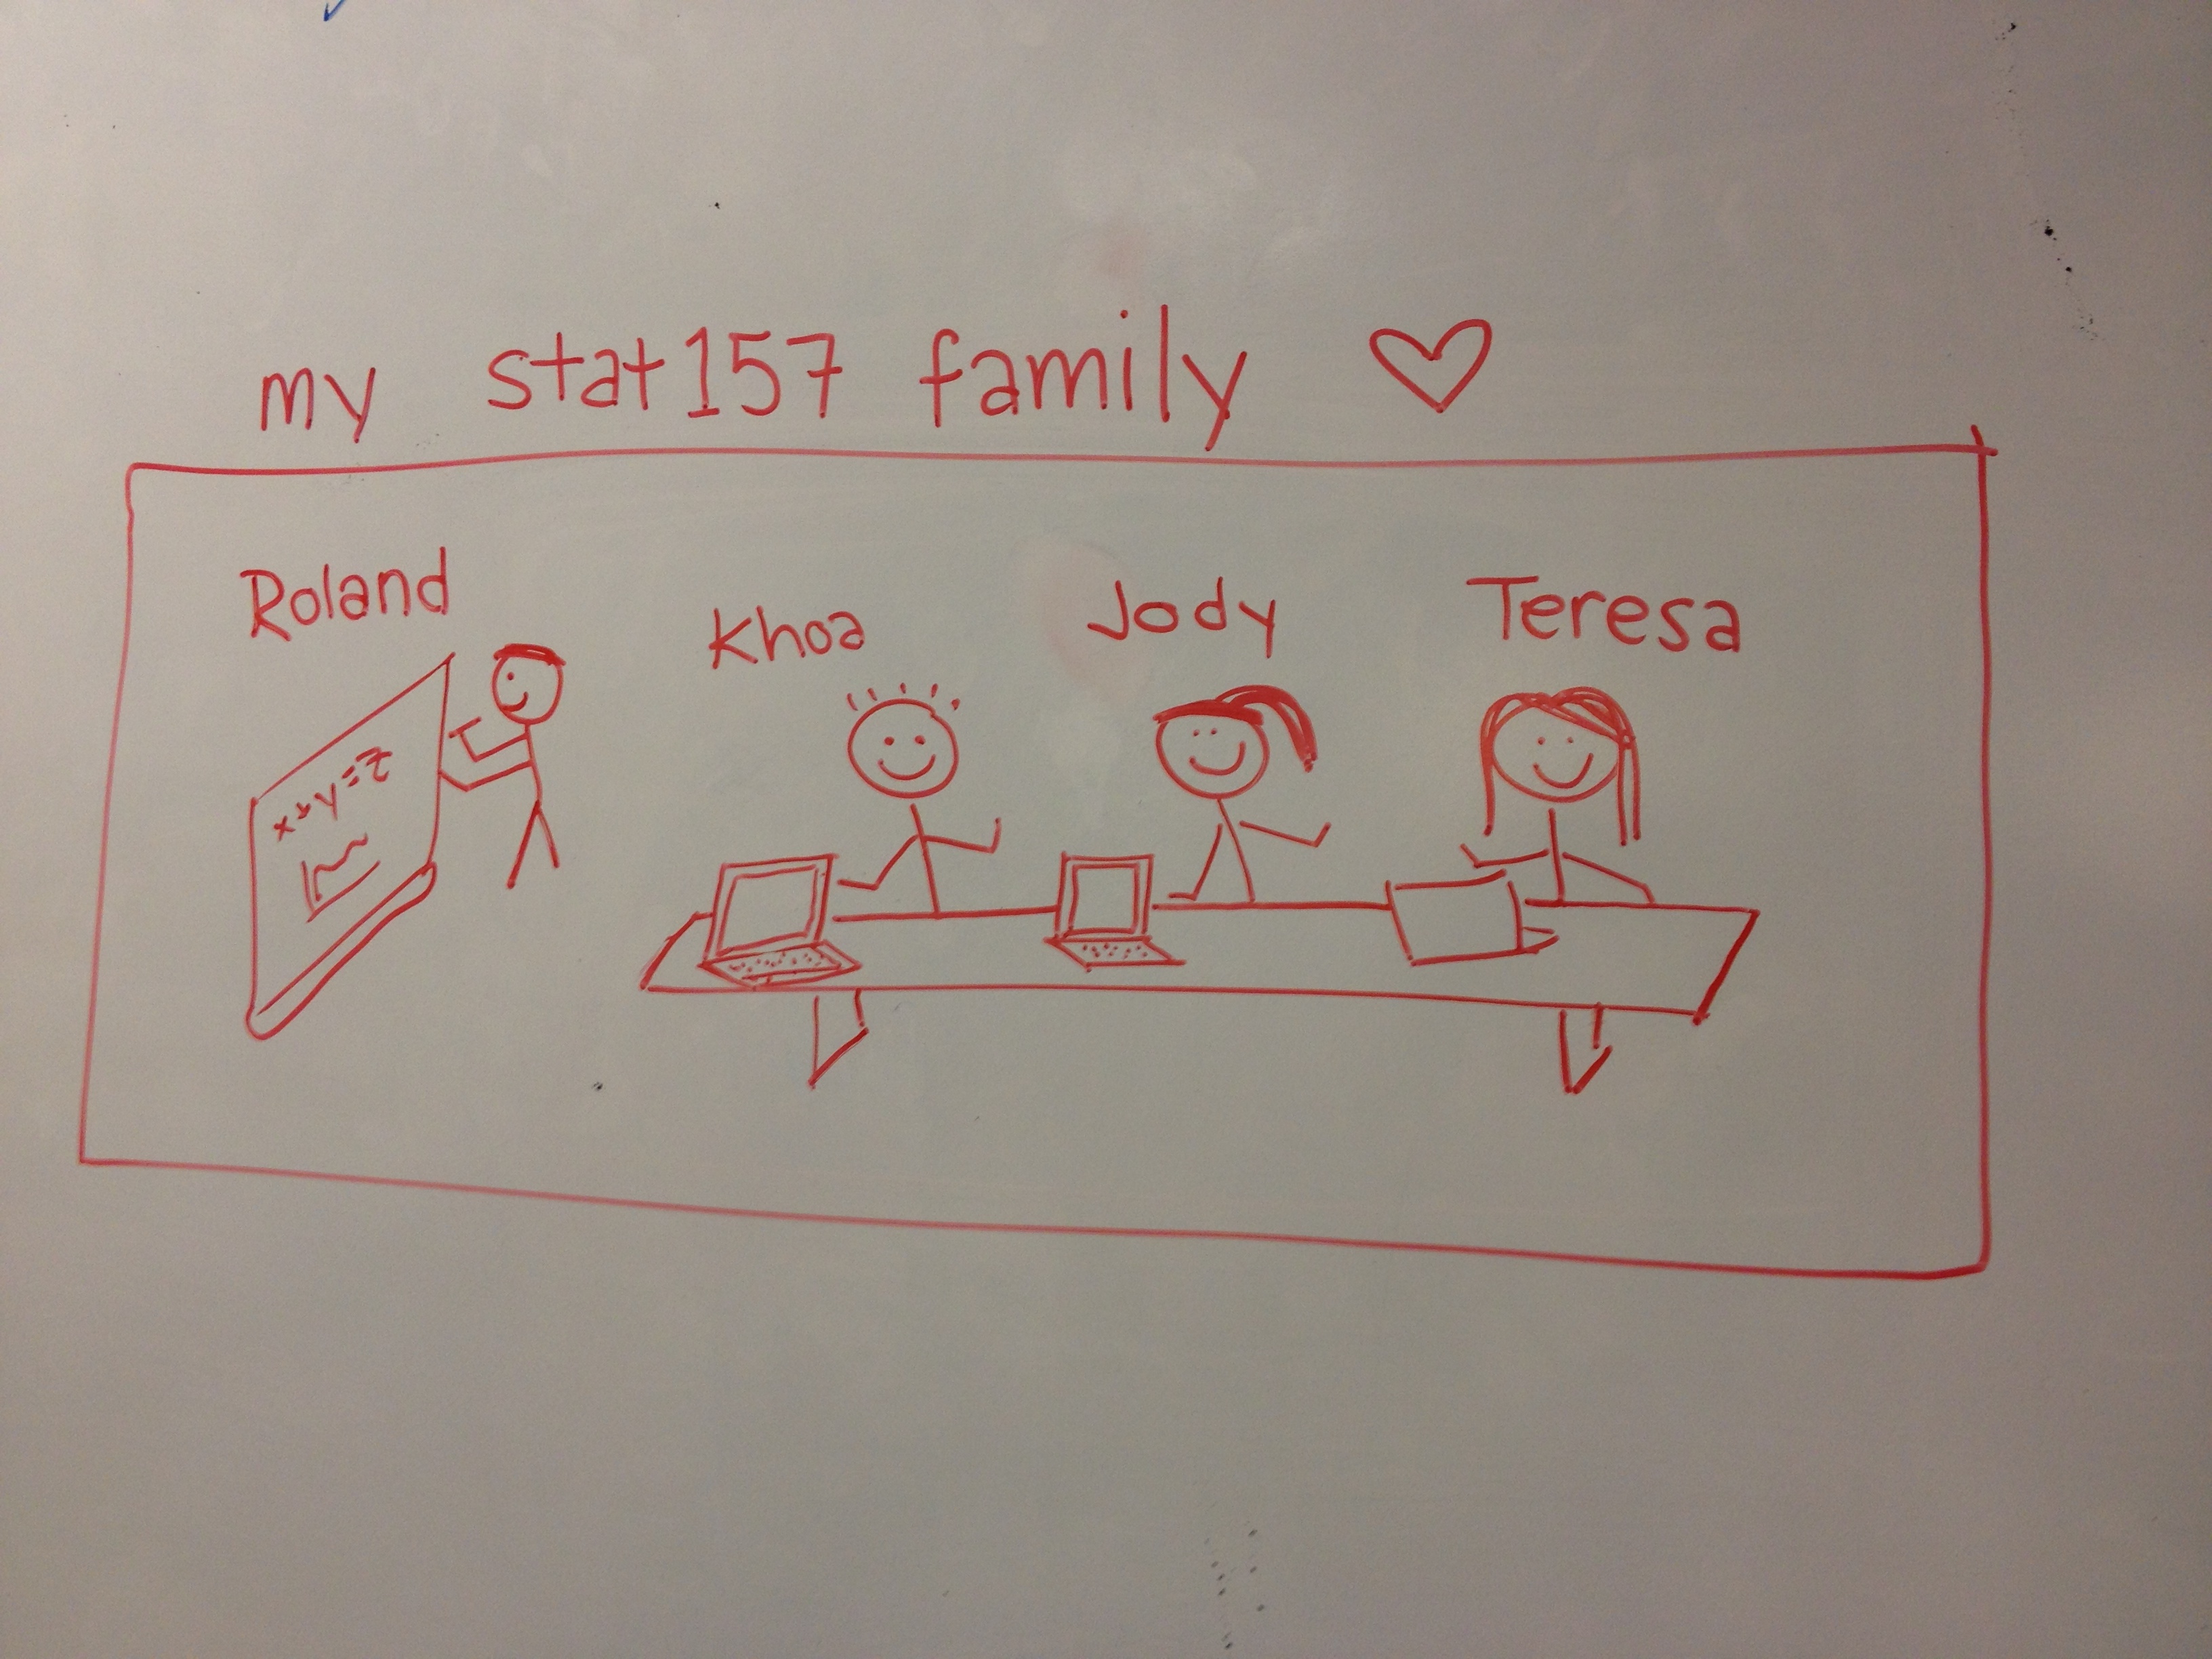 my stat157 family ♡
Roland
Khoa
Jody
Teresa
x+y=z